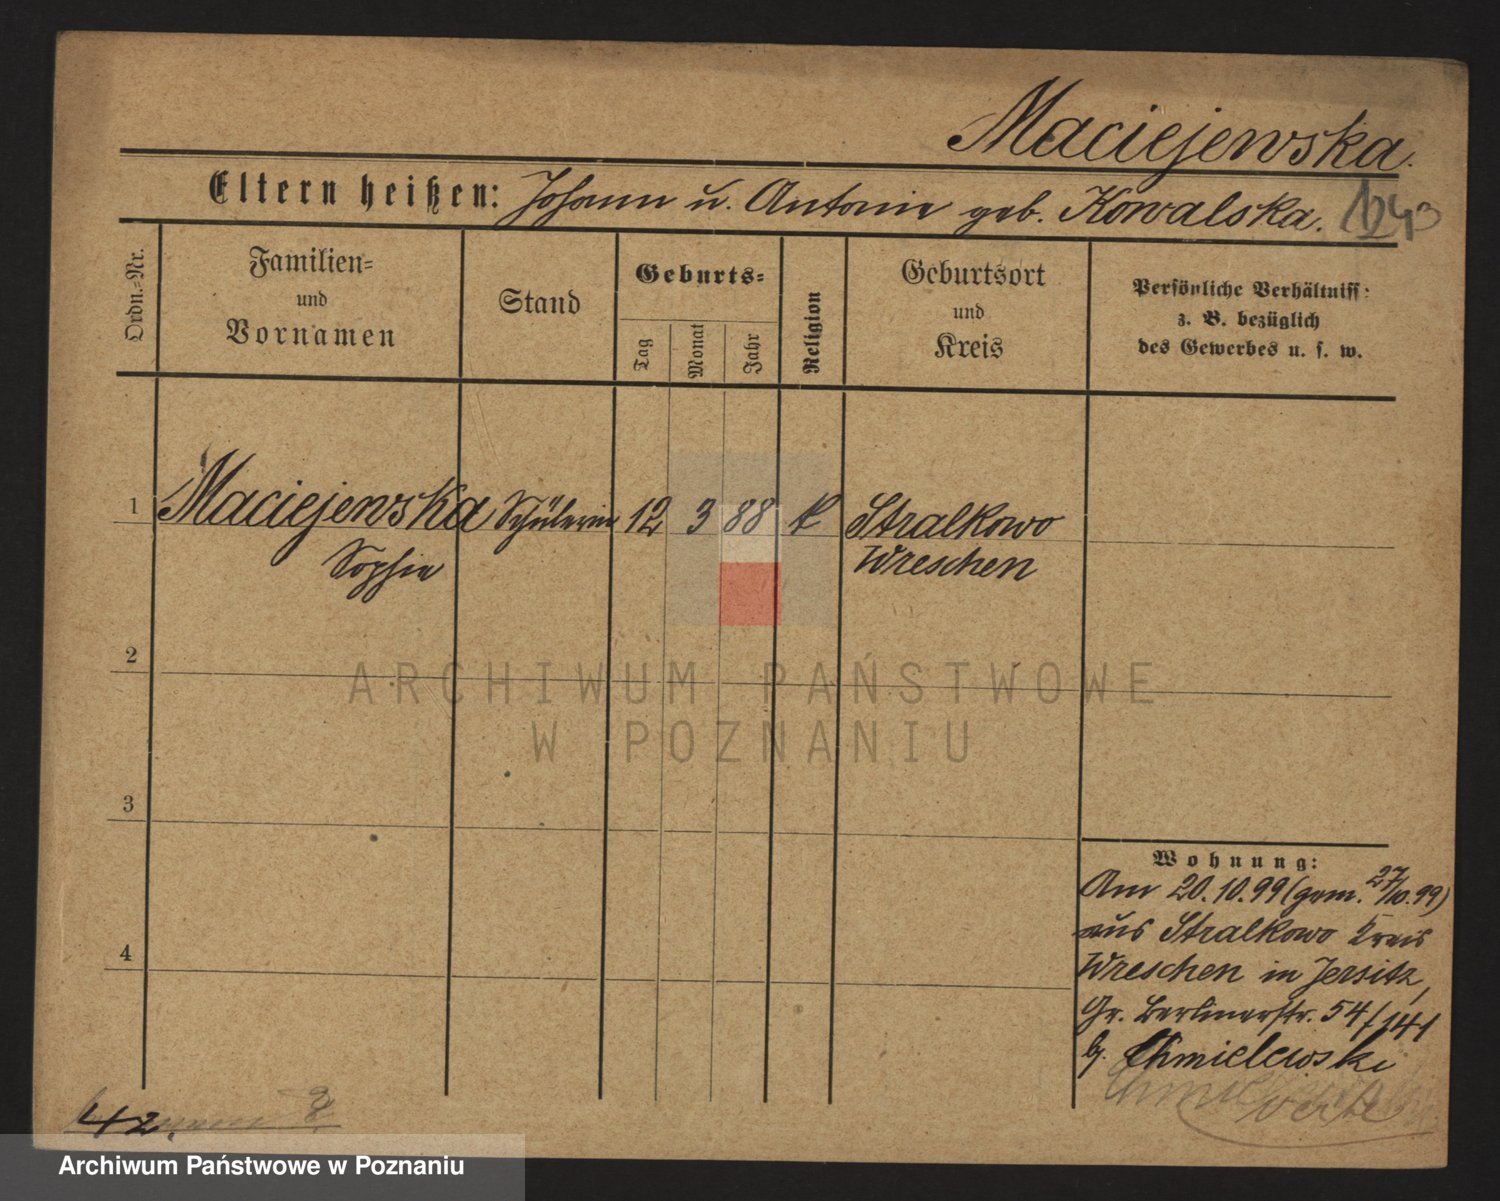 Maciejewska.
Eltern heißen: Johann u. Antonie geb. Kowalska.
Ordn.-Nr.
Familien-
und
Vornamen
Stand
Geburts-
Tag
Monat
Jahr
Religion
Geburtsort
und
Kreis
Persönliche Verhältniss:
z. B. bezüglich
des Gewerbes u. s. w.
1 Maciejewska Schülerin 12 3 88 k Stralkowo
Sophie Wreschen
2
3
4
Wohnung:
Am 20.10.99 (gem. 27/10.99)
aus Stralkowo Kreis
Wreschen in Jersitz,
Gr. Berlinerstr. 54/141
b. Chmielewski
42.
ARCHIWUM PAŃSTWOWE
W POZNANIU
Archiwum Państwowe w Poznaniu